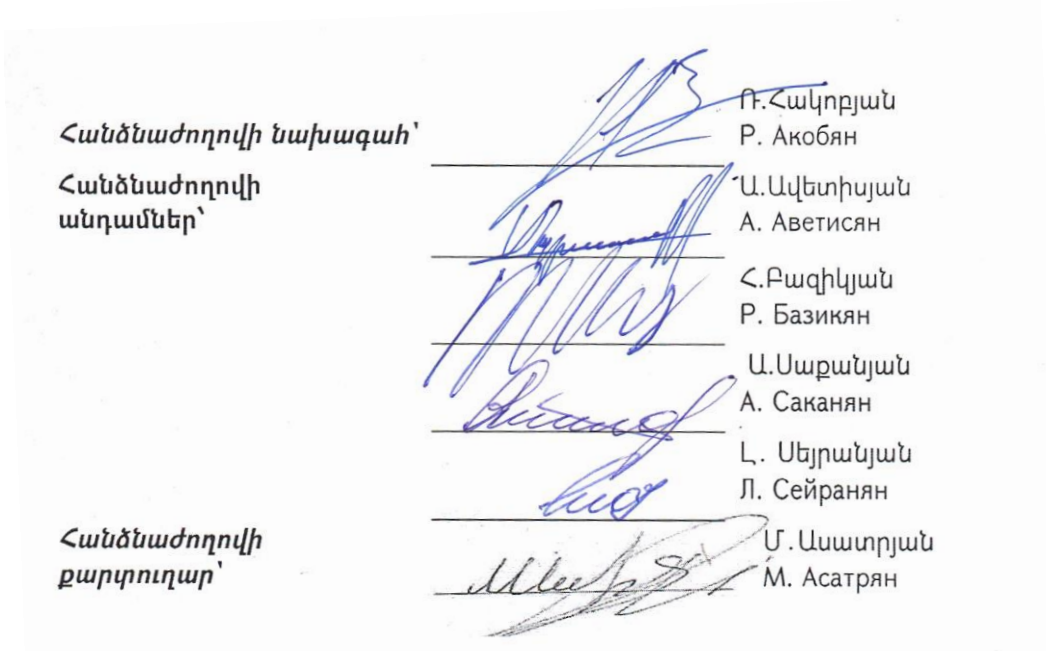 Հանձնաժողովի նախագահ՝
Ռ.Հակոբյան
Р. Акобян
Հանձնաժողովի
անդամներ՝
Ա.Ավետիսյան
А. Аветисян
Հ.Բազիկյան
Р. Базикян
Ա.Սաքանյան
А. Саканян
Լ. Սեյրանյան
Л. Сейранян
Հանձնաժողովի
քարտուղար՝
Մ.Ասատրյան
М. Асатрян